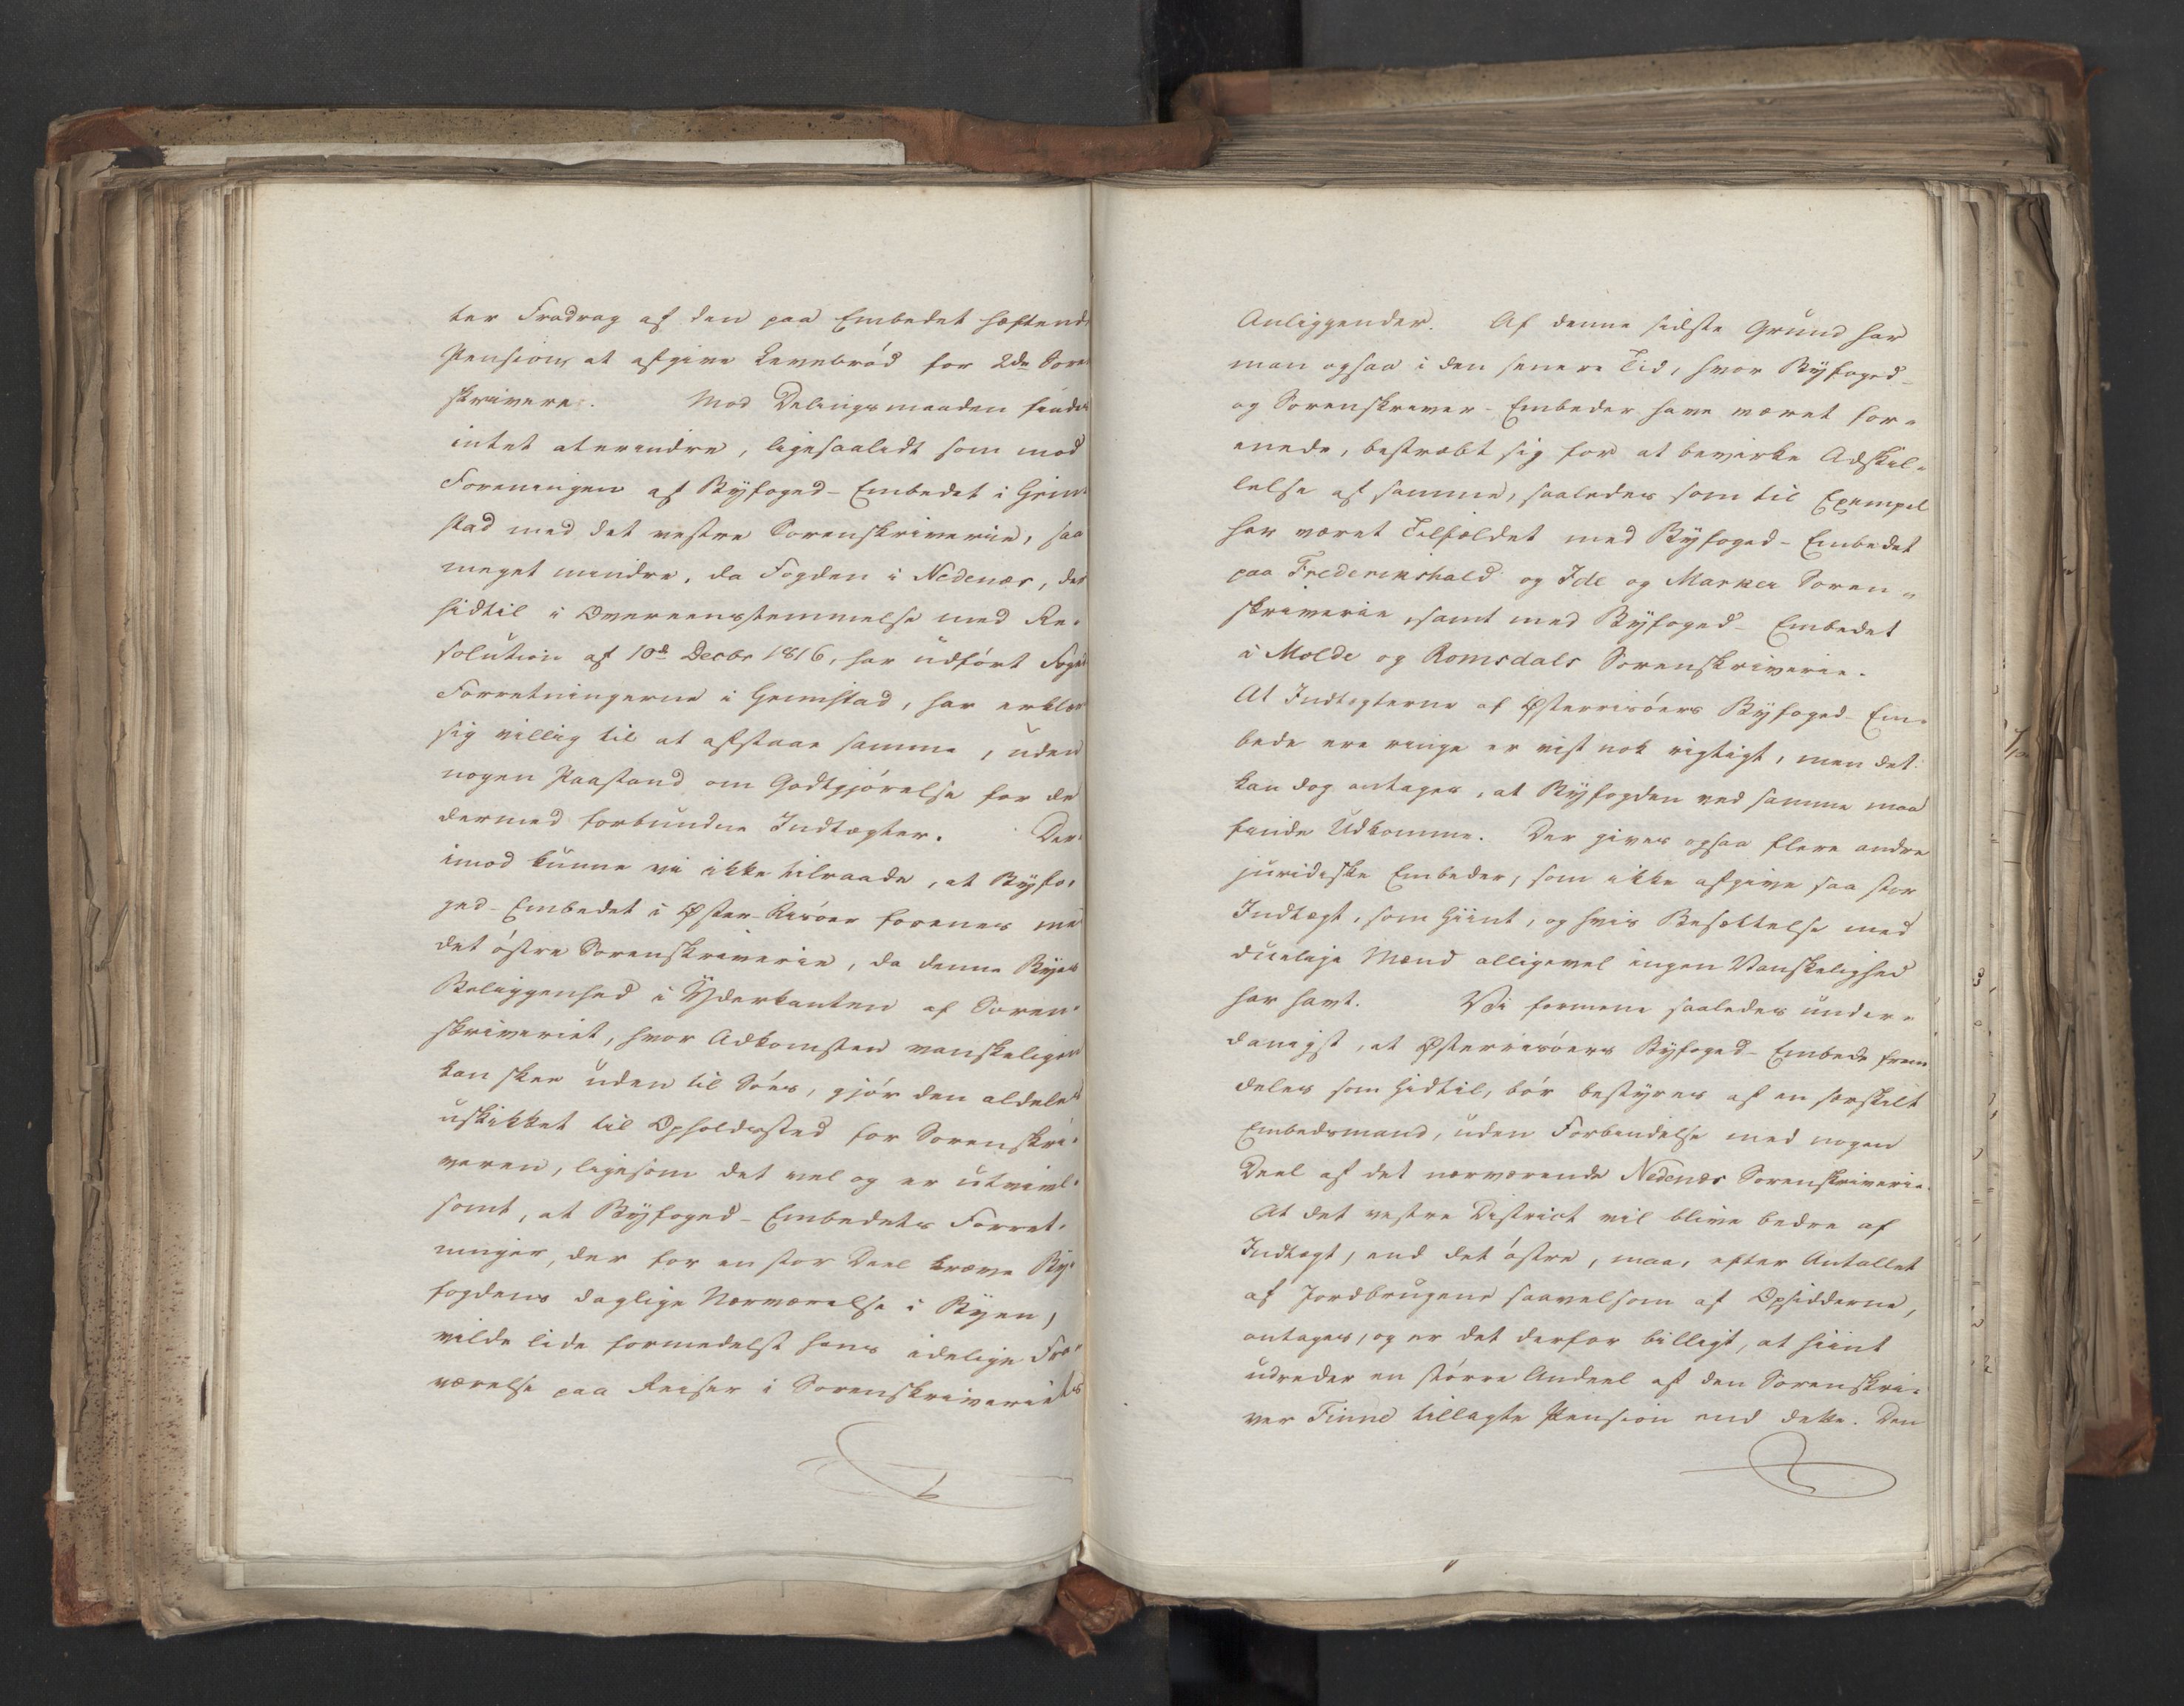 ter Fradrag af den paa Embedet hæftende
Pension, at afgive Levebrød for 2de Soren
skrivere. Mod Delingsmaaden findes
intet at erindre, ligesaalidt som mod
Foreningen af Byfoged-Embedet i Grim-
stad med det vestre Sorenskriverie, saa
meget mindre, da Fogden i Nedenæs, der
hidtil i Overeensstemmelse med Re-
solution af 10de Decbr 1816, har udført Foged
Forretningerne i Grimstad, har erklæret
sig villig til at afstaae samme, uden
nogen Paastand om Godtgjørelse for de
dermed forbundne Indtægter. Der-
imod kunne vi ikke tilraade, at Byfo-
ged-Embedet i Øster-Risøer forenes med
det østre Sorenskriverie, da denne Byes
Beliggenhed i Yderkanten af Soren-
skriveriet, hvor Adkomsten vanskeligen
kan skee uden til Søes, gjør den aldeles
uskikket til Opholdssted for Sorenskri-
veren, ligesom det vel og er utvivl-
somt, at Byfoged-Embedets Forret-
ninger, der for en stor Deel kræve By-
fogdens daglige Nærværelse i Byen,
vilde lide formedelst hans idelige Fra-
værelse paa Reiser i Sorenskriveriets
Anliggender. Af denne sidste Grund har
man ogsaa i den senere Tid, hvor Byfoged-
og Sorenskriver-Embeder have været for-
enede, bestræbt sig for at bevirke Adskil-
lelse af samme, saaledes som til Exempel
har været Tilfældet med Byfoged-Embedet
paa Frederikshald og Ide og Markers Soren-
skriverie, samt med Byfoged-Embedet
i Molde og Romsdals Sorenskriverie.
At Indtægterne af Østerrisøers Byfoged-Em-
bede ere ringe er vist nok rigtigt, men det
kan dog antages, at Byfogden ved samme maa
finde Udkomme. Der gives ogsaa flere andre
juridiske Embeder, som ikke afgive saa stor
Indtægt, som hiint, og hvis Besættelse med
duelige Mænd alligevel ingen Vanskelighed
har havt. Vi formene saaledes under-
danigst, at Østerrisøers Byfoged-Embede frem
deles som hidtil, bør bestyres af en særskilt
Embedsmand, uden Forbindelse med nogen
Deel af det nærværende Nedenæs Sorenskriverie.
At det vestre District vil blive bedre af
Indtægt, end det østre, maa, efter Antallet
af Jordbrugene saavelsom af Opsidderne,
antages, og er det derfor billigt, at hiint
udreder en større Andeel af den Sorenskri-
ver Finne tillagte Pension end dette. Den